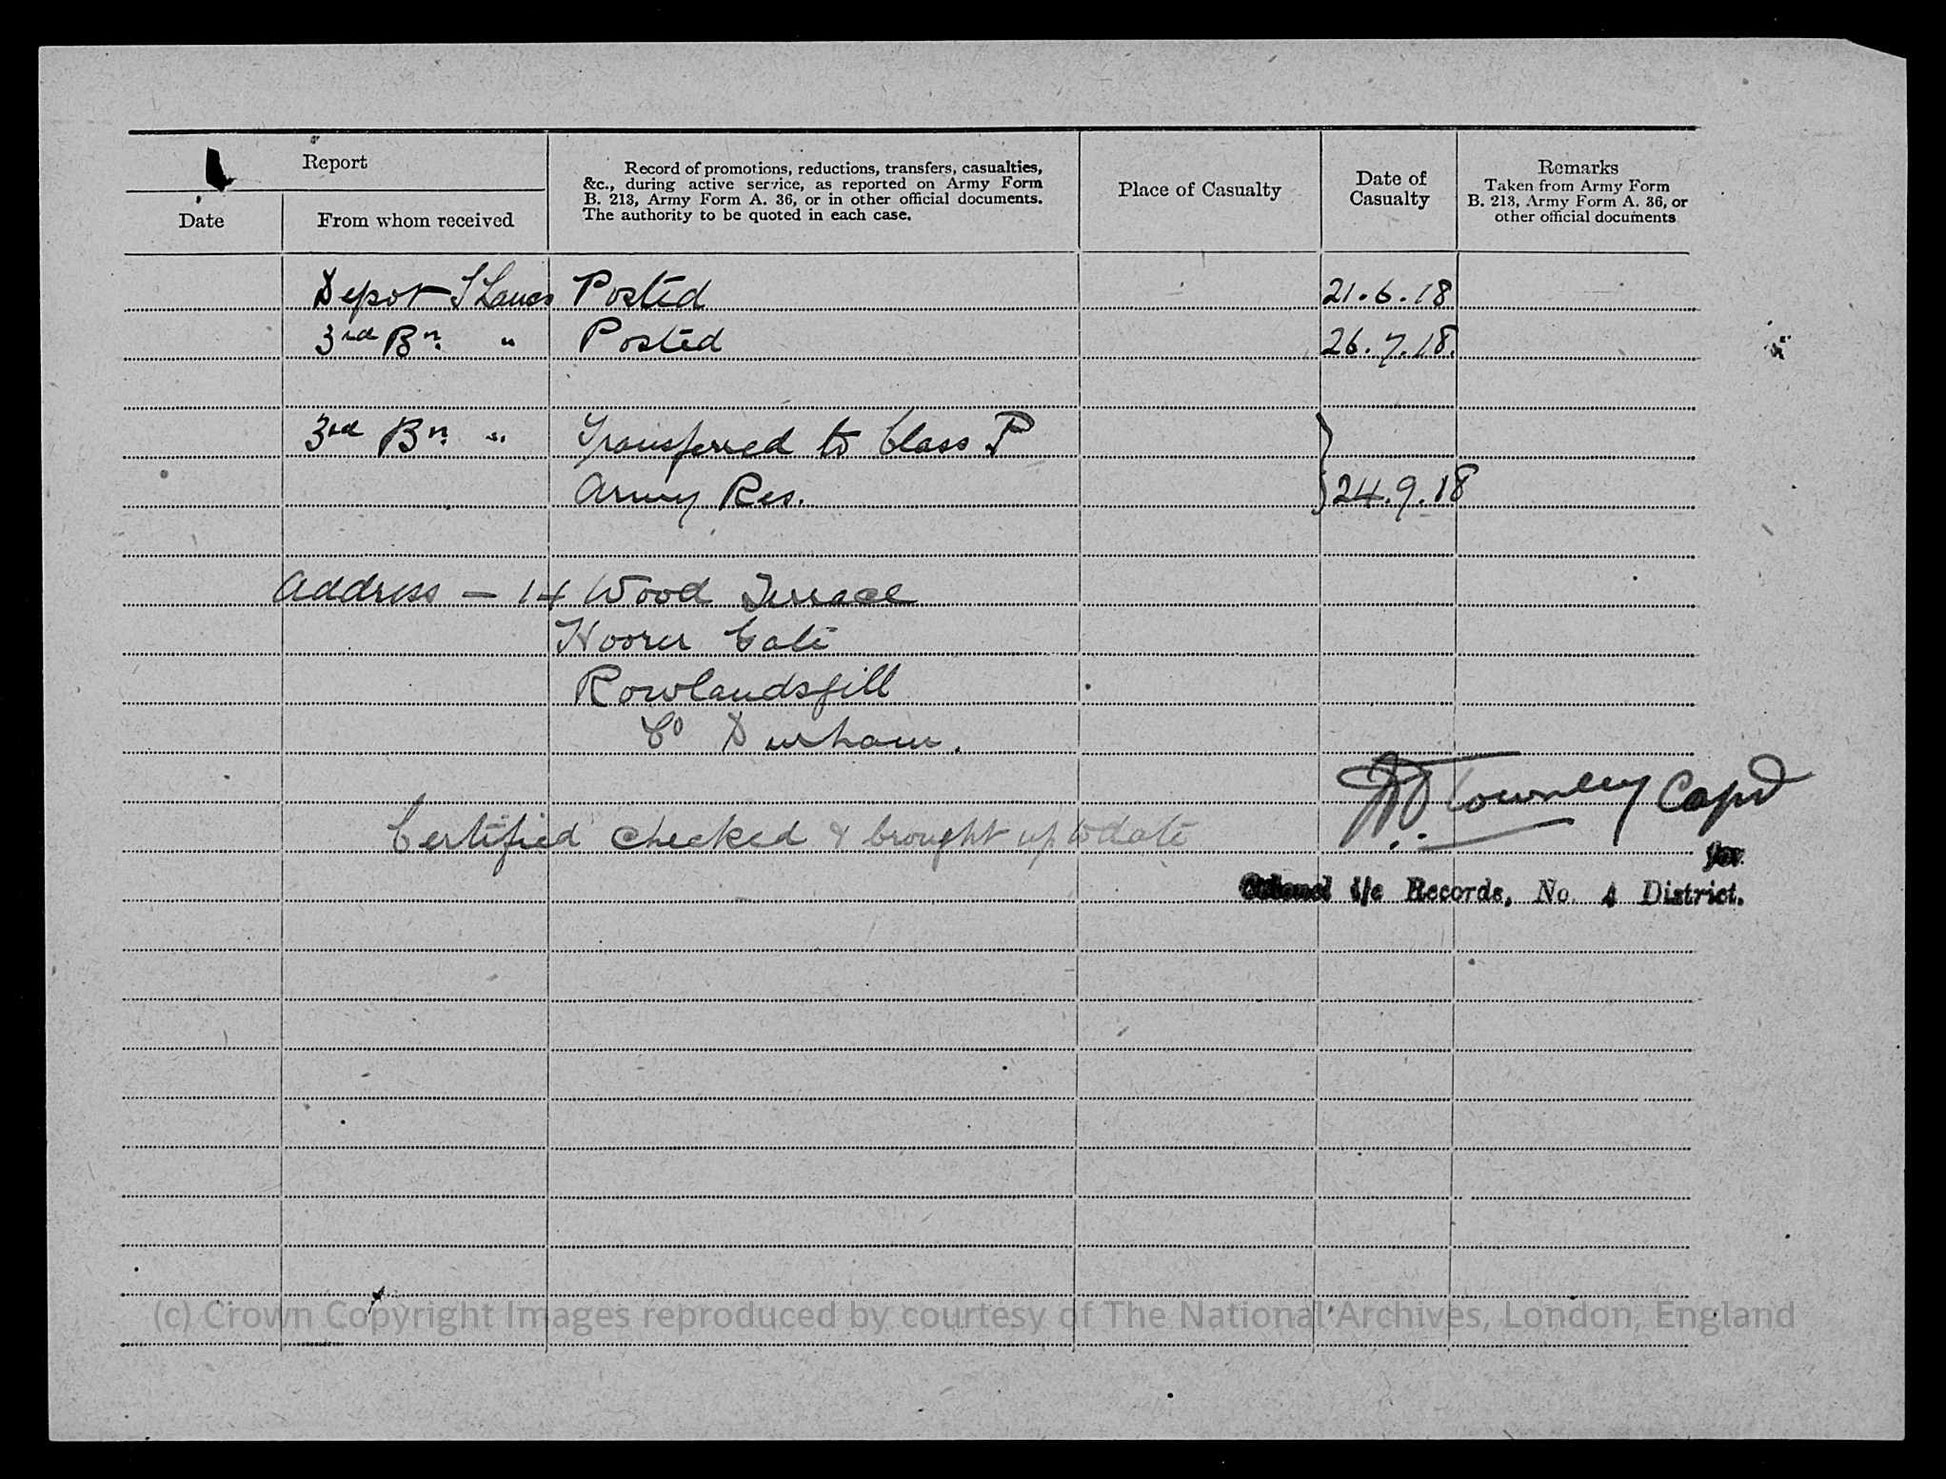 Report
Date
From whom received
Record of promotions, reductions, transfers, casualties,
&c., during active service, as reported on Army Form
B. 213, Army Form A. 36, or in other official documents.
The authority to be quoted in each case.
Place of Casualty
Date of
Casualty
Remarks
Taken from Army Form
B. 213, Army Form A. 36, or
other official documents
Depot S Lancs Posted 21.6.18
3rd Bn. " Posted 26.7.18.
3rd Bn. " Transferred to Class P
Army Res. } 24.9.18
Address — 14 Wood Terrace
Gate
Rowlandsgill
Co Durham.
Townley Capt
Certified checked & brought up to date
for
Colonel i/c Records, No. 4 District.
(c) Crown Copyright Images reproduced by courtesy of The National Archives, London, England